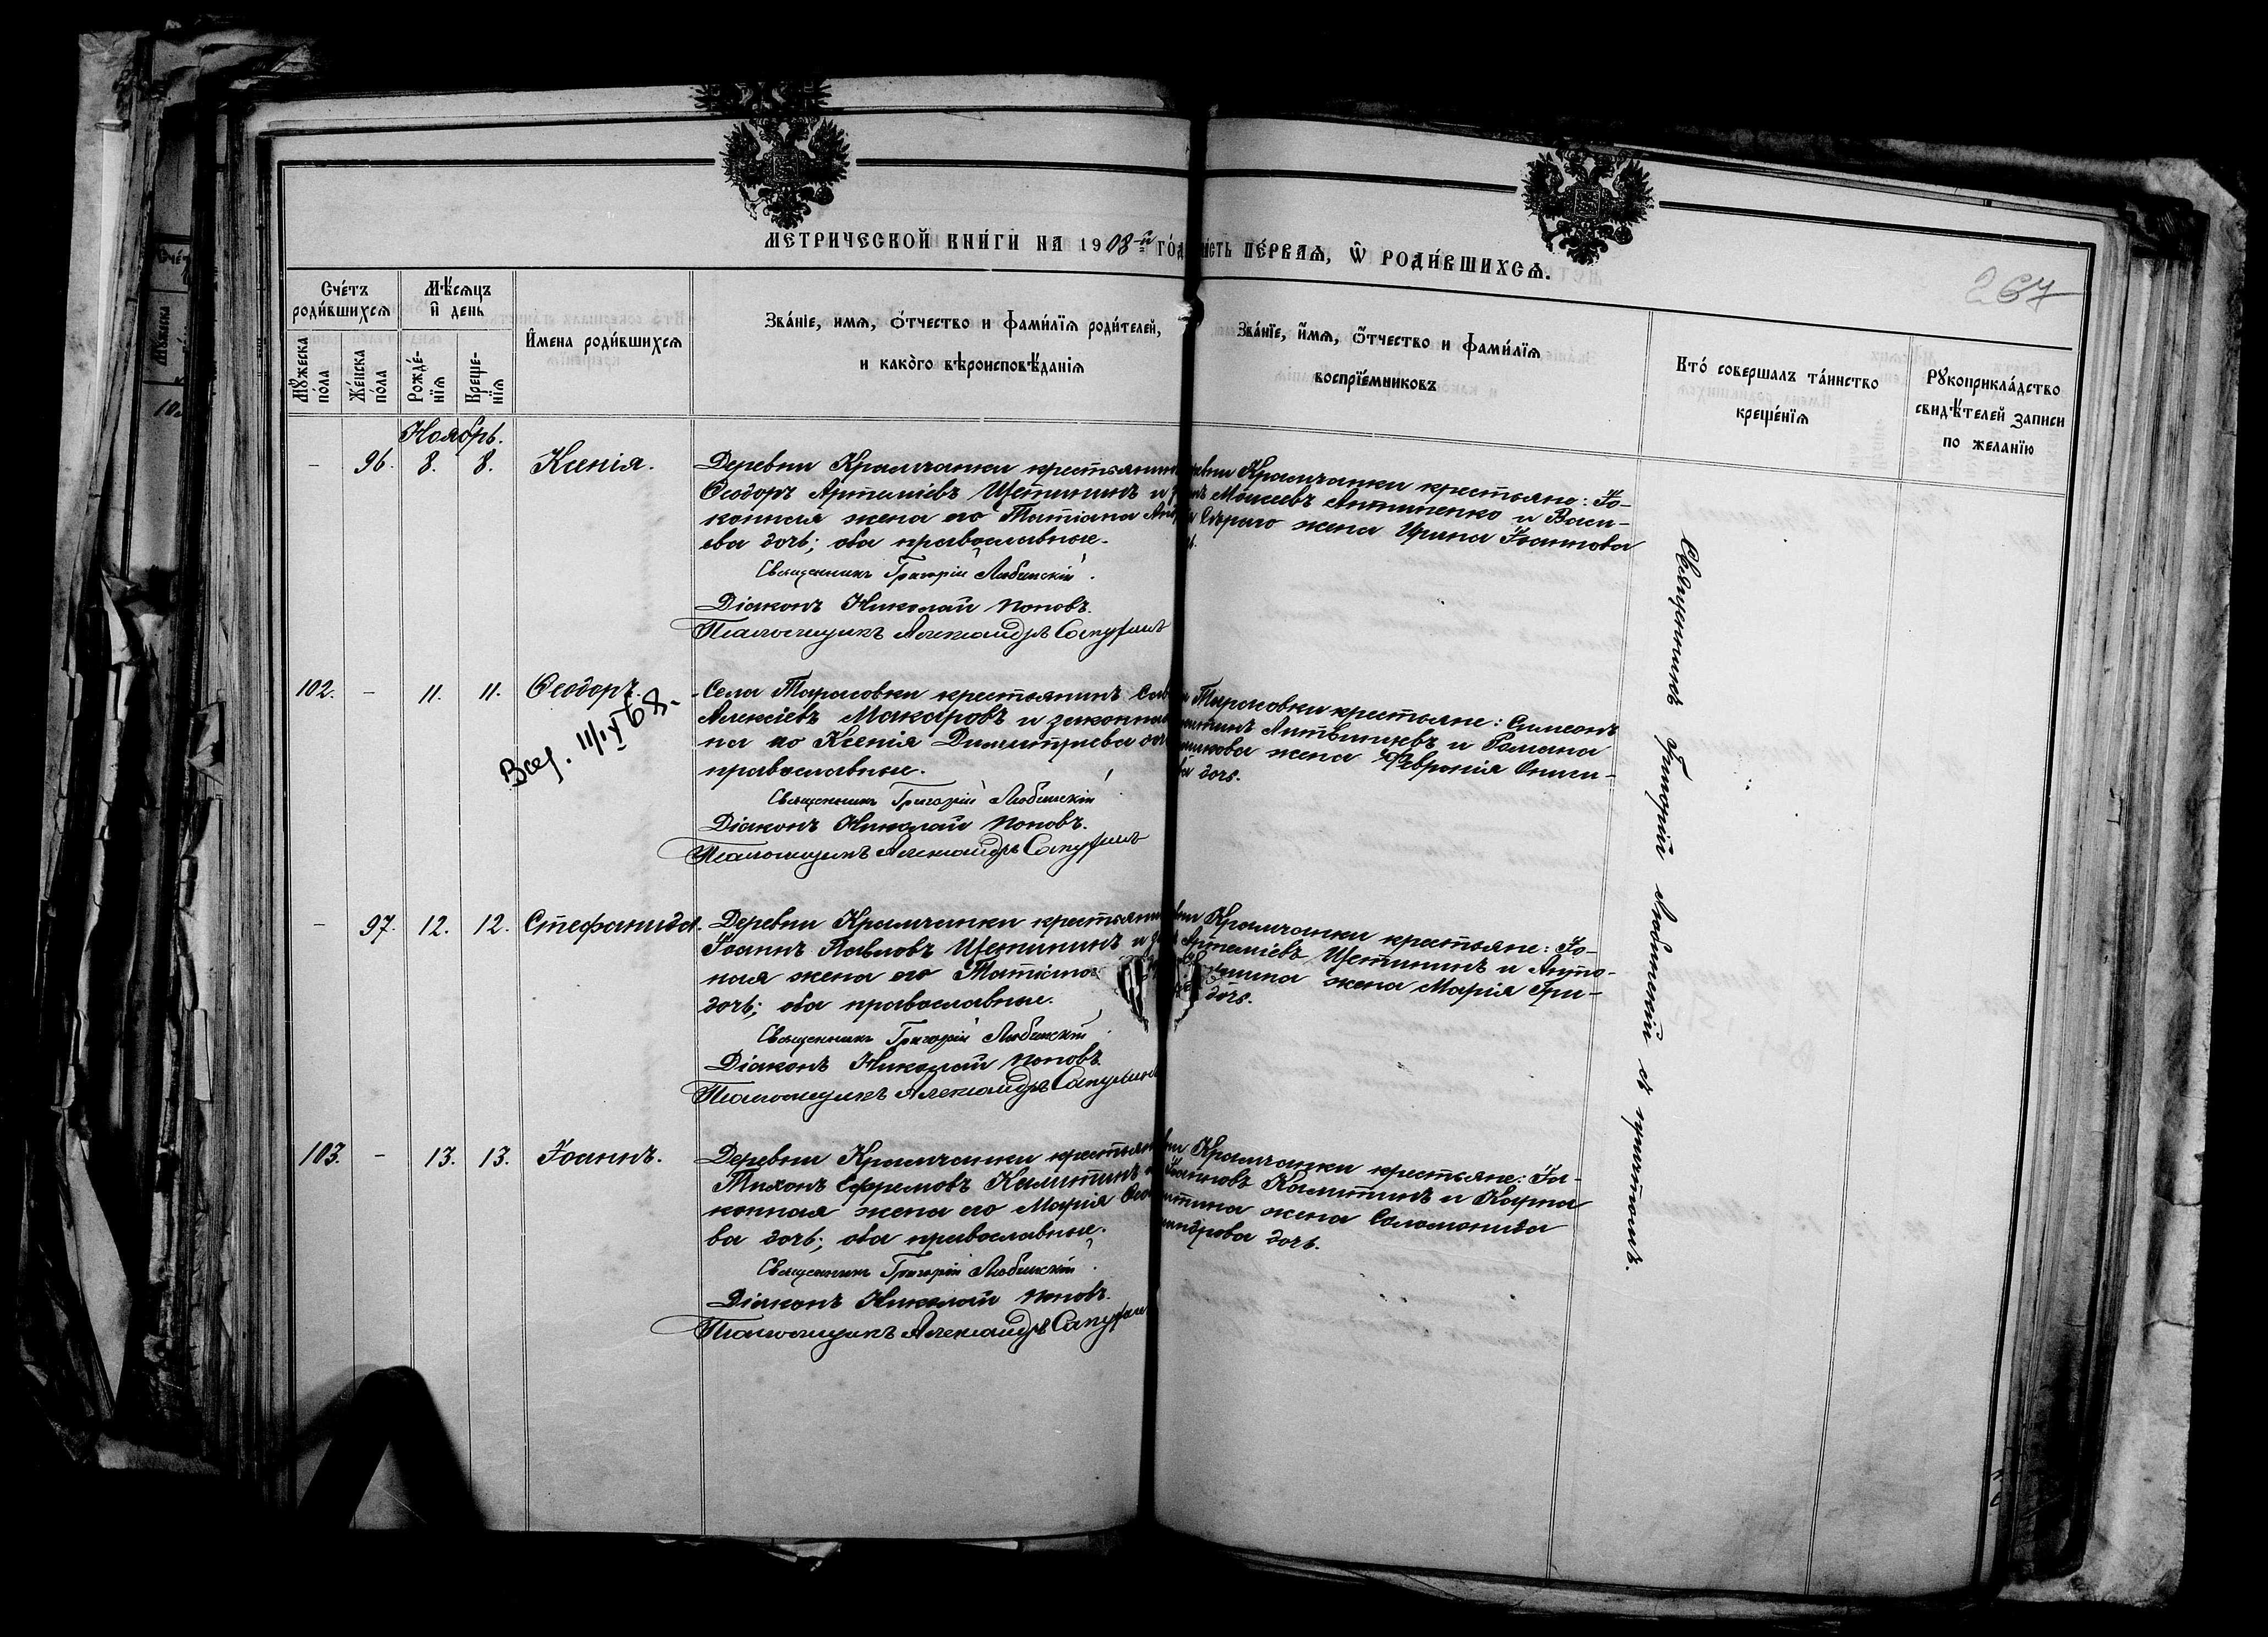 МЕТРИЧЕСКОЙ КНИ́ГИ НА 1908-й ГО́Д
ЧА́СТЬ ПЕ́РВАѦ, Ѿ РОДИ́ВШИХСѦ.
267
Сче́тъ роди́вшихсѧ
Мꙋ́жеска по́ла
Же́нска по́ла
Мѣ́сѧцъ и҆ день
Рожде́-нїѧ
Креще-нїѧ
И҆мена роди́вшихсѧ
Зва́нїе, имѧ, ѻ҆́тчество и фами́лїѧ роди́телей,
и како́гѡ вѣроисповѣ́данїѧ
Зва́нїе, и҆́мѧ, ѻ҆́тчество и фами́лїѧ
воспрїе́мниковъ
Кто́ совершалъ та́инство
креще́нїѧ
Рꙋкоприкла́дство
свидѣ́телей записи
по желанїю
Ноябрь.
– 96. 8. 8. Ксенія.
Деревни Крымчанки крестьянинъ
Ѳеодоръ Артеміевъ Щетининъ и
конная жена его Татіана
ева дочь; оба православные.
Священникъ Григорій Любинскій
Діаконъ Николай Поповъ.
Псаломщикъ Александръ
Крымчанки крестьяне: Іо-
Моисеевъ Антипенко и Васи-
Сѣраго жена Ирина Іоаннова
102. – 11. 11. Ѳеодоръ.
11/IV 68.
Села Тарасовки крестьянинъ
Алексіевъ Макаровъ и законная
на его Ксенія Димитріева
православные.
Священникъ Григорій Любинскій
Діаконъ Николай Поповъ.
Псаломщикъ Александръ
Тарасовки крестьяне: Симеонъ
и Романа
жена Февронія Ониси-
дочь.
– 97. 12. 12. Стефанида.
Деревни Крымчанки крестьянинъ
Іоаннъ Павловъ Щетининъ и
ная жена его Татіана
дочь; оба православные.
Священникъ Григорій Любинскій
Діаконъ Николай Поповъ.
Псаломщикъ Александръ
Крымчанки крестьяне: Іо-
Артеміевъ Щетининъ и Анто-
жена Марія Гри-
дочь.
103. – 13. 13. Іоаннъ.
Деревни Крымчанки крестьянинъ
Тихонъ Ефремовъ Калитинъ
конная жена его Марія
ва дочь; оба православные.
Священникъ Григорій Любинскій
Діаконъ Николай Поповъ.
Псаломщикъ Александръ
Крымчанки крестьяне: Іо-
Іоанновъ Калитинъ и Карпа
жена Соломонида
дочь.
Священникъ Григорій Любинскій съ причтомъ.